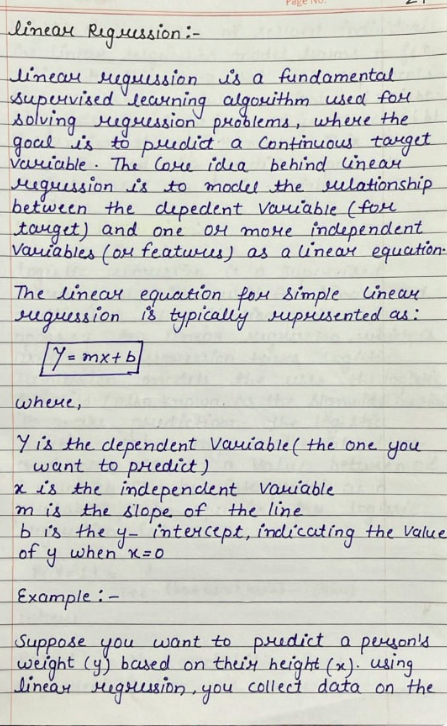 linear Regression:-
linear regression is a fundamental
supervised learning algorithm used for
solving regression problems, where the
goal is to predict a continuous target
variable. The Core idea behind linear
regression is to model the relationship
between the depedent variable (for
target) and one or more independent
variables (or features) as a linear equation.
The linear equation for simple linear
regression is typically represented as:
Y = mx + b
where,
Y is the dependent variable (the one you
want to predict)
x is the independent variable
m is the slope of the line
b is the y- intercept, indicating the value
of y when x=0
Example :-
Suppose you want to predict a person's
weight (y) based on their height (x). using
linear regression, you collect data on the